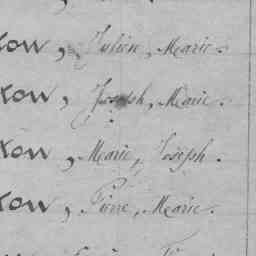 kow, Julien, Marie.
kow, Joseph, Marie.
kow, Marie, Joseph.
kow, Pierre, Marie.